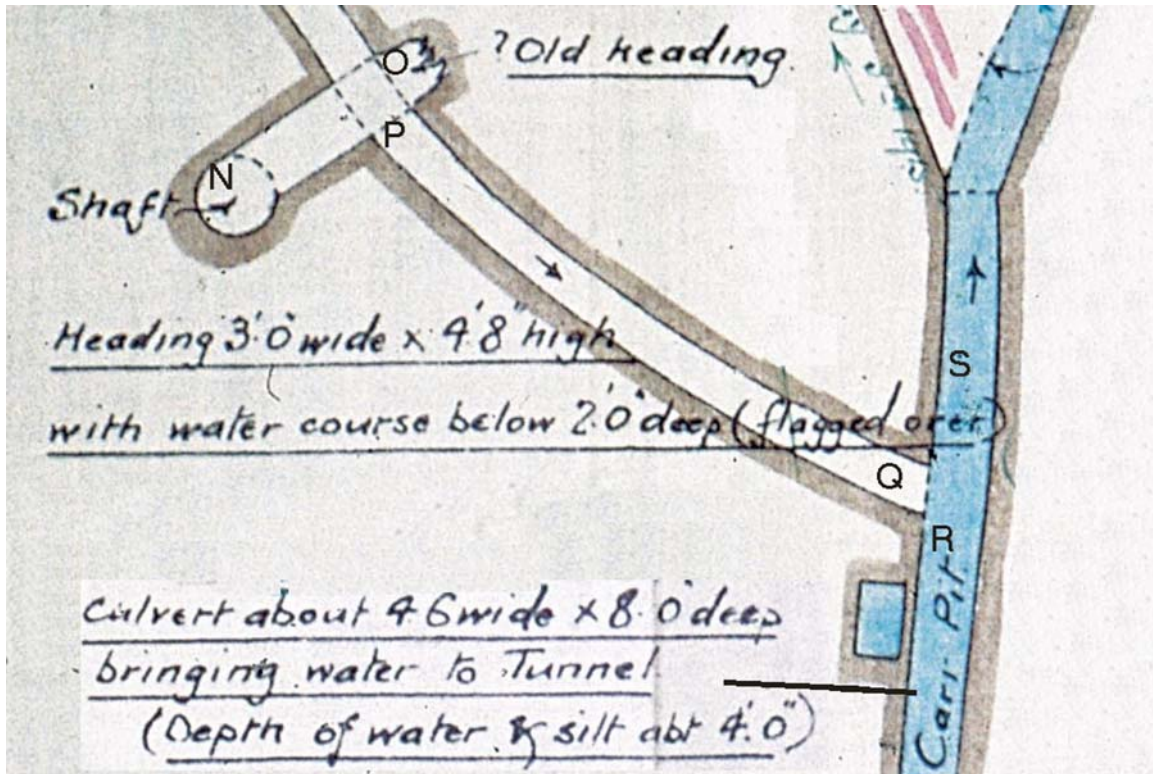 O
? Old Heading.
P
N
Shaft
Heading 3'0" wide x 4'8" high
S
with water course below 2'0" deep (flagged over)
Q
R
Culvert about 4'6 wide x 8'0" deep
bringing water to Tunnel
(Depth of water & silt abt 4'0")
Carr Pit